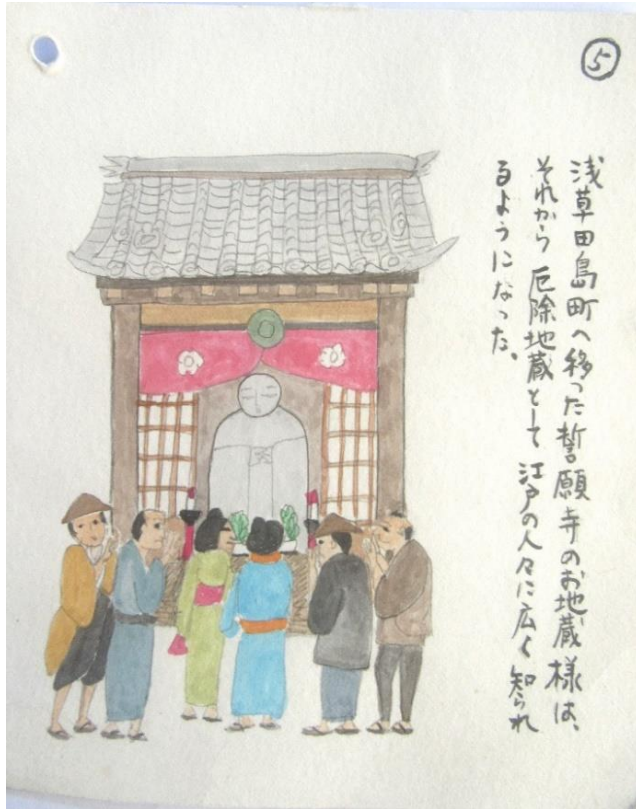 ⑤
浅草田島町へ移った誓願寺のお地蔵様は、
それから厄除地蔵として江戸の人々に広く知られ
るようになった。